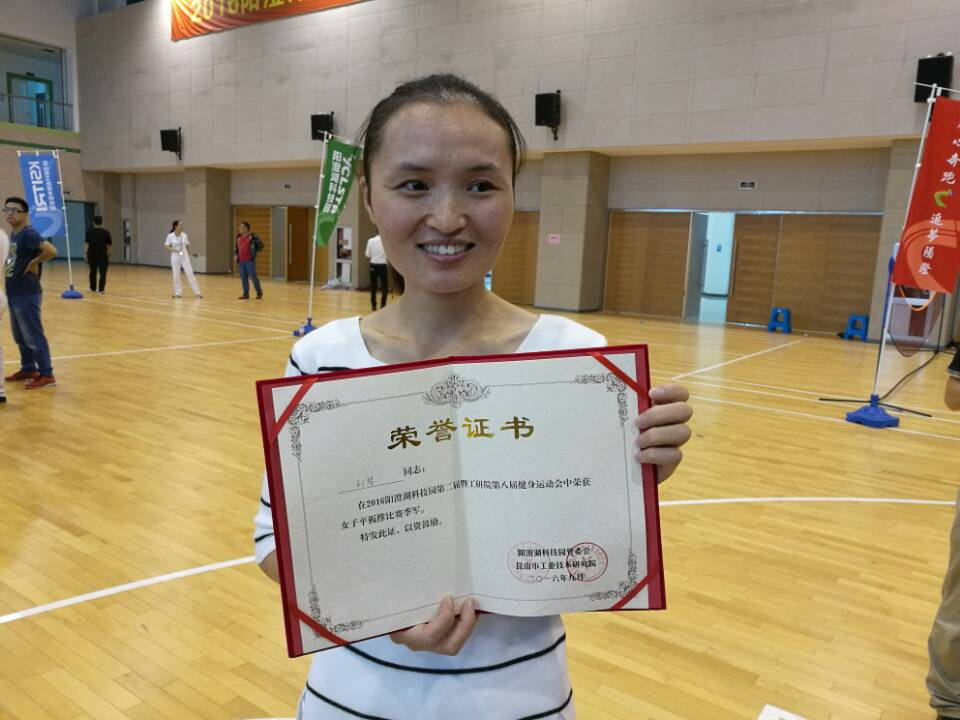 2016阳澄
KSITRI
YCLST
阳澄湖科技园
心奔跑
追梦阳澄
荣誉证书
同志:
在2016阳澄湖科技园第二届暨工研院第八届健身运动会中荣获
女子平板撑比赛季军。
特发此证,以资鼓励。
阳澄湖科技园管委会
昆山市工业技术研究院
二〇一六年九月